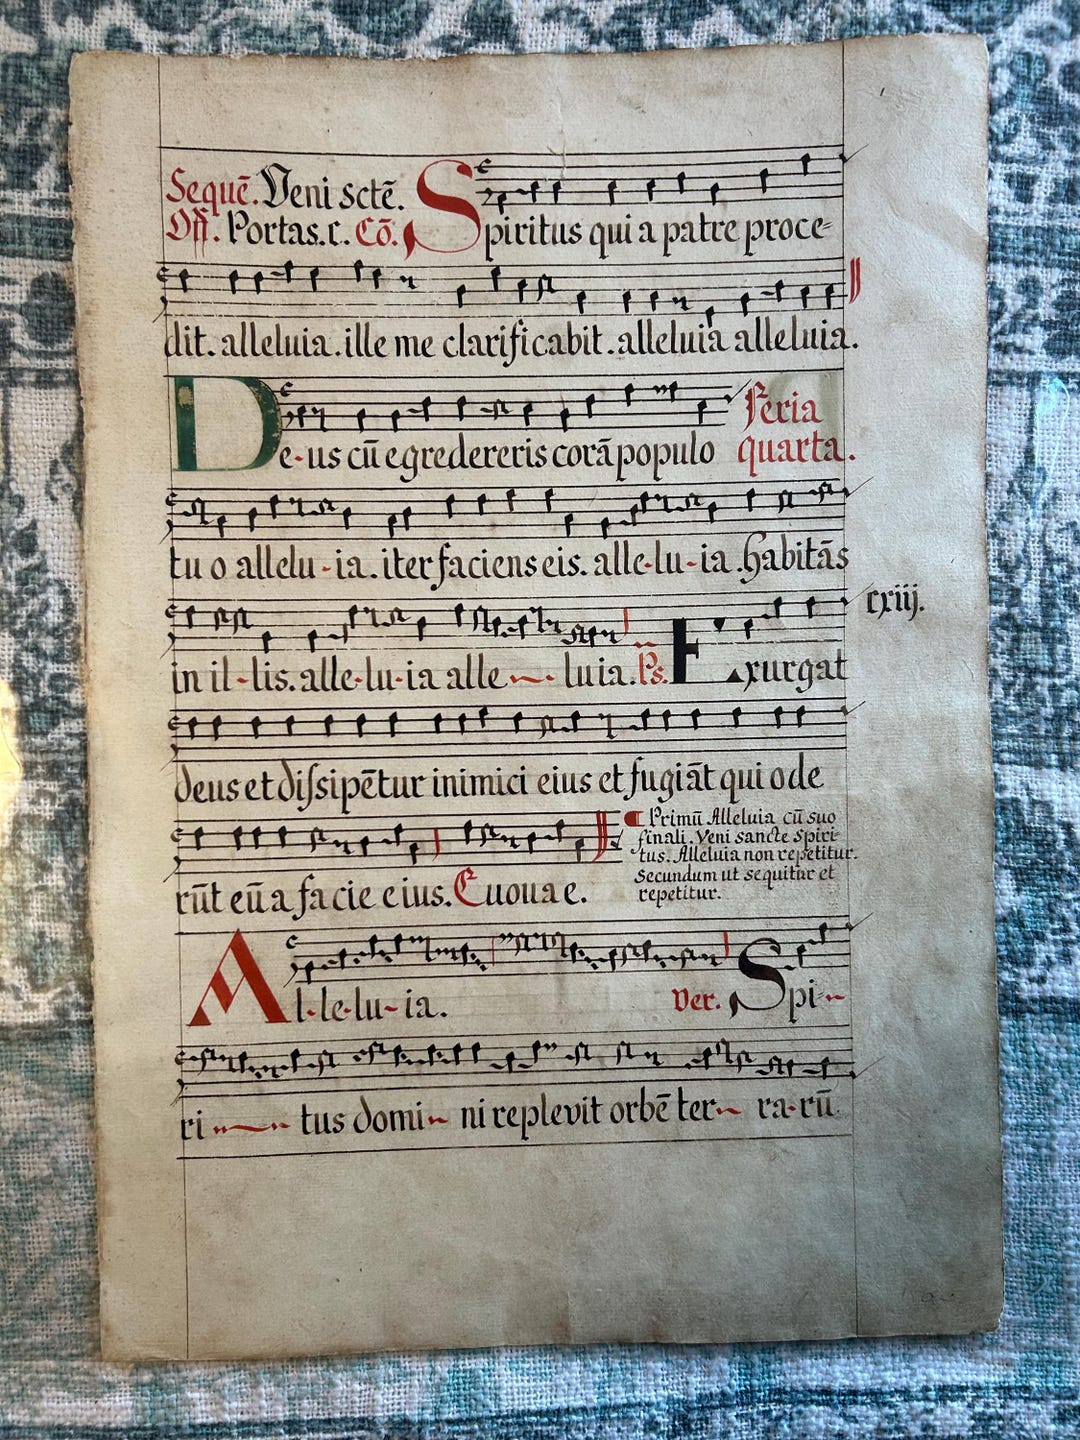 Sequē. Veni sctē.
Off. Portas. c. Cō. Spiritus qui a patre proce-
dit. alleluia. ille me clarificabit. alleluia alleluia.
De-us cū egredereris corā populo
Feria
quarta.
tu o allelu-ia. iter faciens eis. alle-lu-ia. Habitās
cxiij.
in il-lis. alle-lu-ia alle luia. Ps. Exurgat
deus et dissipētur inimici eius et fugiāt qui ode
rūt eū a facie eius. Euouae.
Primū Alleluia cū suo
finali. Veni sancte Spiri-
tus. Alleluia non repetitur.
Secundum ut sequitur et
repetitur.
Al-le-lu-ia. Ver. Spi-
ri tus domi ni replevit orbē ter ra-rū.